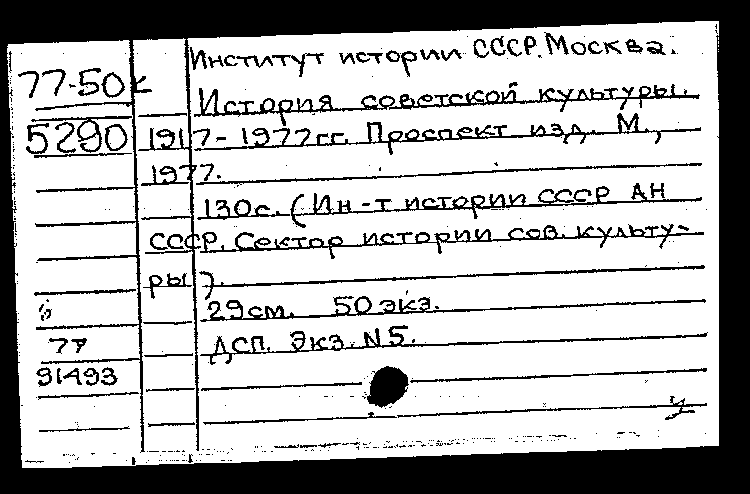 Институт истории СССР. Москва.
77-50к
История советской культуры.
5290
1917-1977гг. Проспект изд. М.,
1977.
130с. (Ин-т истории СССР АН
СССР. Сектор истории сов. культу-
ры).
29см. 50экз.
77
ДСП. Экз. N5.
91493